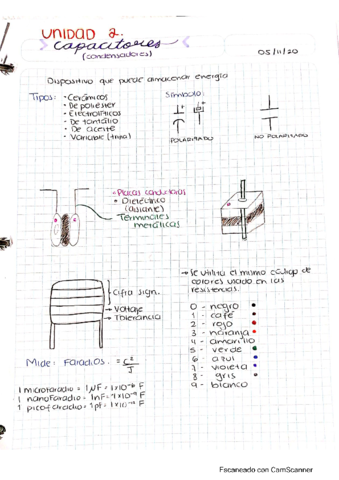 UNIDAD 2.
Capacitores
(condensadores)
05/11/20
Dispositivo que puede almacenar energía
Tipos:
• Cerámicos
• De poliéster
• Electrolíticos
• De tantalio
• De aceite
• Variable (trim)
Símbolo:
POLARIZADO
NO POLARIZADO
• Placas conductoras
• Dieléctrico
(aislante)
Terminales
metálicas
Cifra sign.
→ Voltaje
→ Tolerancia
→ Se utiliza el mismo código de
colores usado en las
resistencias.
0 - negro
1 - café
2 - rojo
3 - naranja
4 - amarillo
5 - verde
6 - azul
7 - violeta
8 - gris
9 - blanco
Mide: Faradios. = C²/J
1 microfaradio = 1μF = 1x10⁻⁶ F
1 nanofaradio = 1nF = 1x10⁻⁹ F
1 picofaradio = 1pF = 1x10⁻¹² F
Escaneado con CamScanner